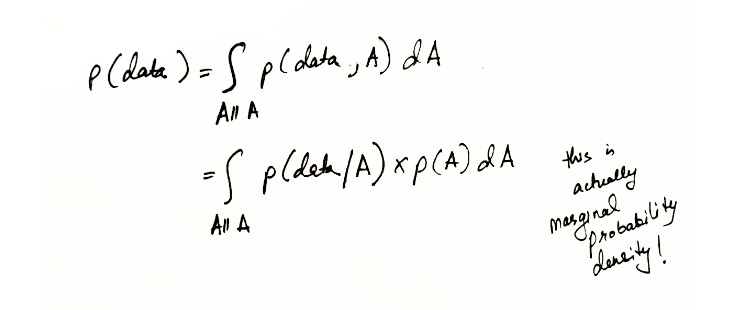 p(data) = ∫ p(data, A) dA
All A
= ∫ p(data/A) × p(A) dA
All A
this is
actually
marginal
probability
density!